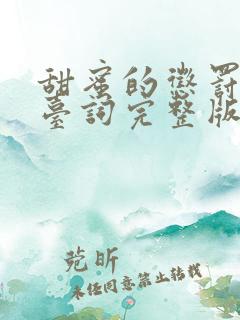 甜蜜的懲罰
臺詞完整版
菀昕
未经同意禁止转载